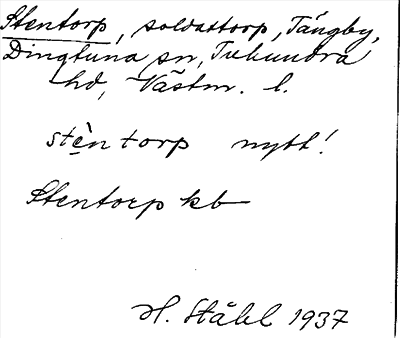 Stentorp, soldattorp, Tängby,
Dingtuna sn, Tuhundra
hd, Västm. l.
stèntorp nytt!
Stentorp kb
H. Ståhl 1937